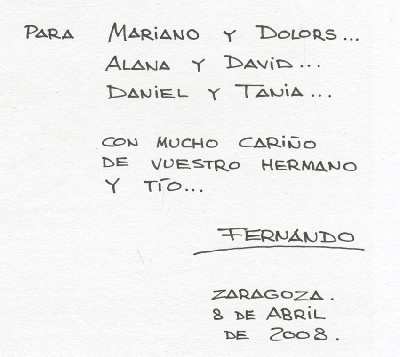 PARA MARIANO Y DOLORS...
ALANA Y DAVID...
DANIEL Y TANIA...
CON MUCHO CARIÑO
DE VUESTRO HERMANO
Y TÍO...
FERNANDO
ZARAGOZA.
8 DE ABRIL
DE 2008.